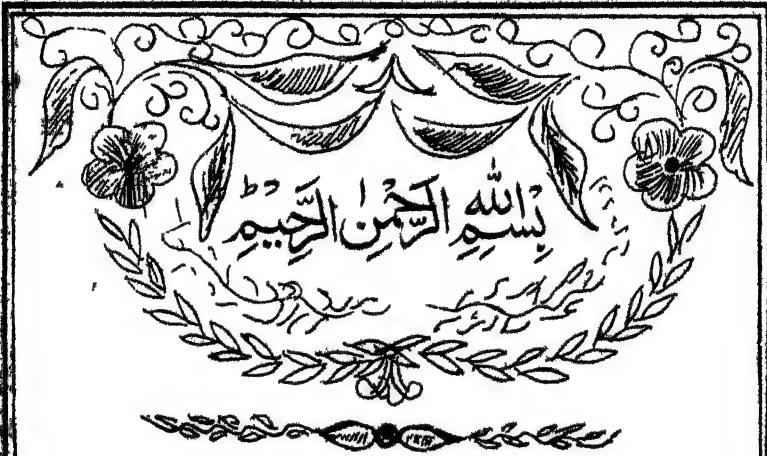 بِسْمِ اللهِ الرَّحْمٰنِ الرَّحِيْمِ ؕ